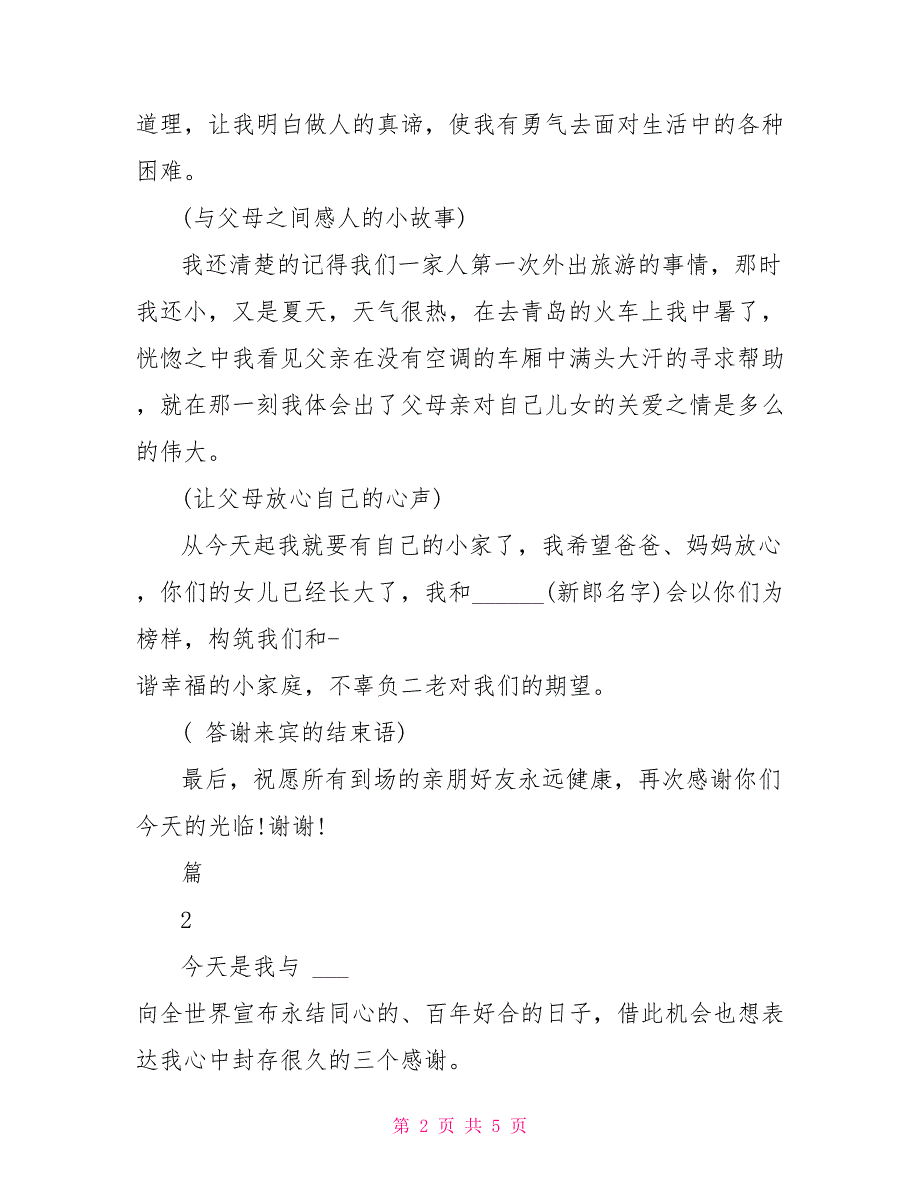 道理，让我明白做人的真谛，使我有勇气去面对生活中的各种
困难。
(与父母之间感人的小故事)
我还清楚的记得我们一家人第一次外出旅游的事情，那时
我还小，又是夏天，天气很热，在去青岛的火车上我中暑了，
恍惚之中我看见父亲在没有空调的车厢中满头大汗的寻求帮助
，就在那一刻我体会出了父母亲对自己儿女的关爱之情是多么
的伟大。
(让父母放心自己的心声)
从今天起我就要有自己的小家了，我希望爸爸、妈妈放心
，你们的女儿已经长大了，我和______(新郎名字)会以你们为
榜样，构筑我们和-
谐幸福的小家庭，不辜负二老对我们的期望。
( 答谢来宾的结束语)
最后，祝愿所有到场的亲朋好友永远健康，再次感谢你们
今天的光临!谢谢!
篇
2
今天是我与 ___
向全世界宣布永结同心的、百年好合的日子，借此机会也想表
达我心中封存很久的三个感谢。
第 2 页 共 5 页